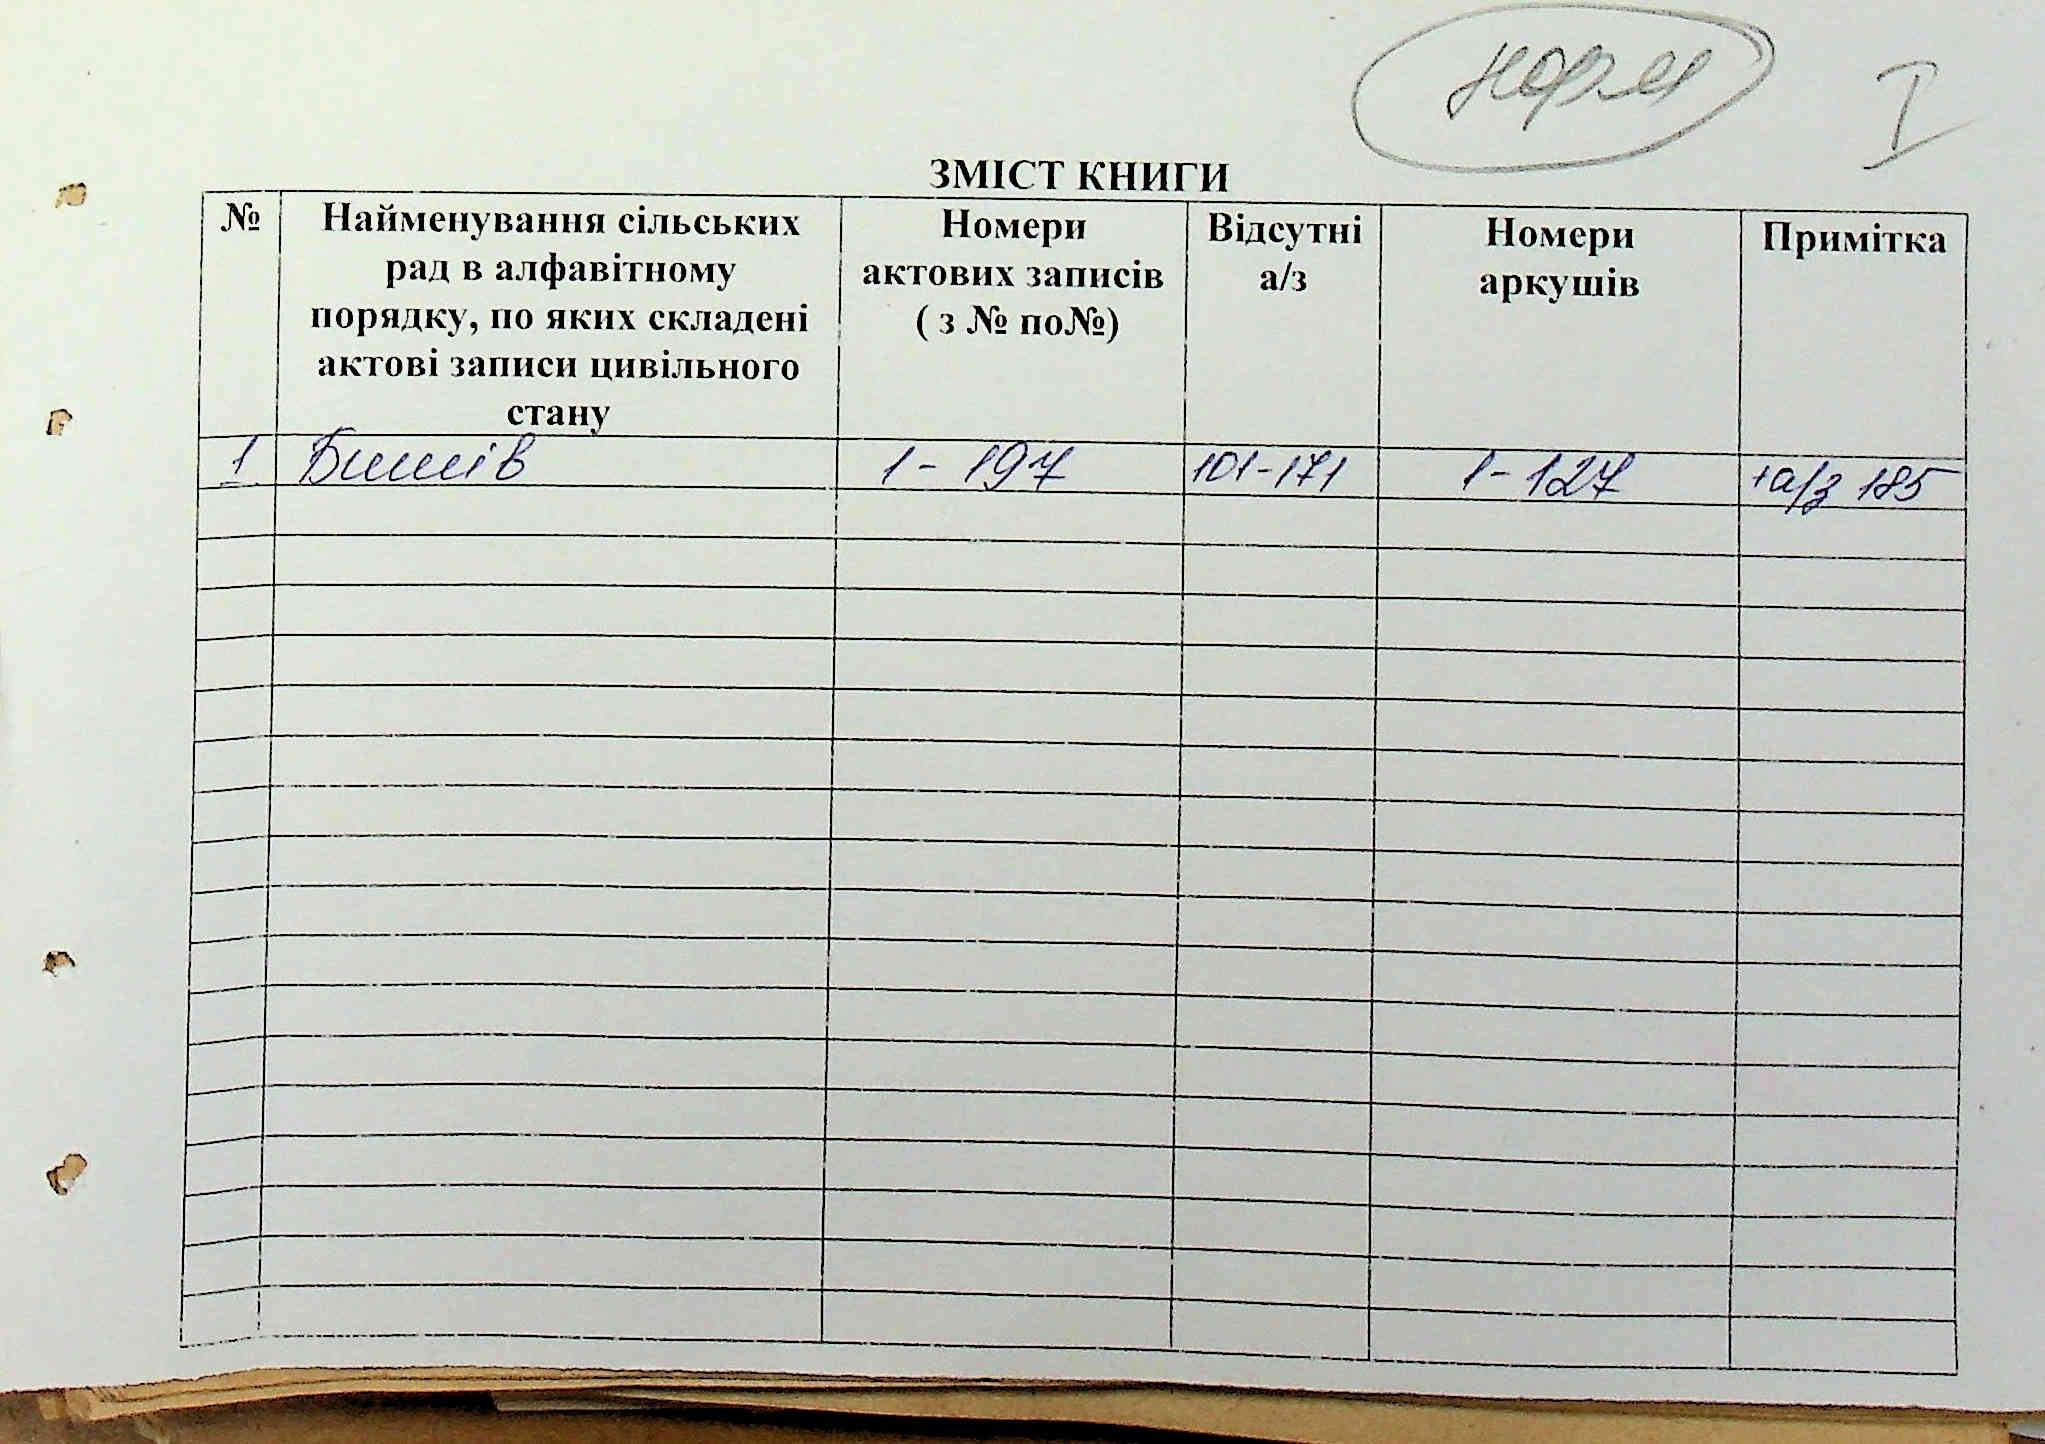 норм I
ЗМІСТ КНИГИ
№ Найменування сільських рад в алфавітному порядку, по яких складені актові записи цивільного стану Номери актових записів ( з № по№) Відсутні а/з Номери аркушів Примітка
1 Бишів 1-197 101-171 1-127 +а/з 185